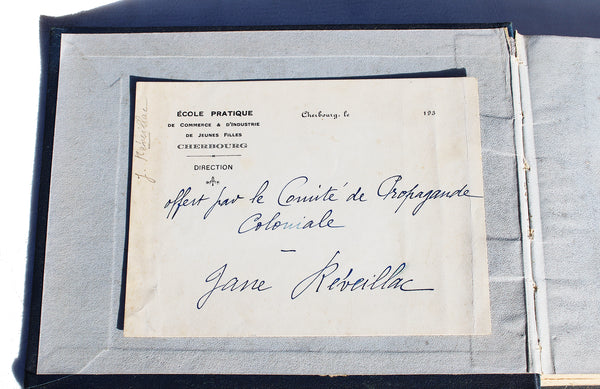 ÉCOLE PRATIQUE
DE COMMERCE & D'INDUSTRIE
DE JEUNES FILLES
CHERBOURG
DIRECTION
Cherbourg, le 193
offert par le Comité de Propagande
Coloniale
—
Jane Réveillac
J. Réveillac